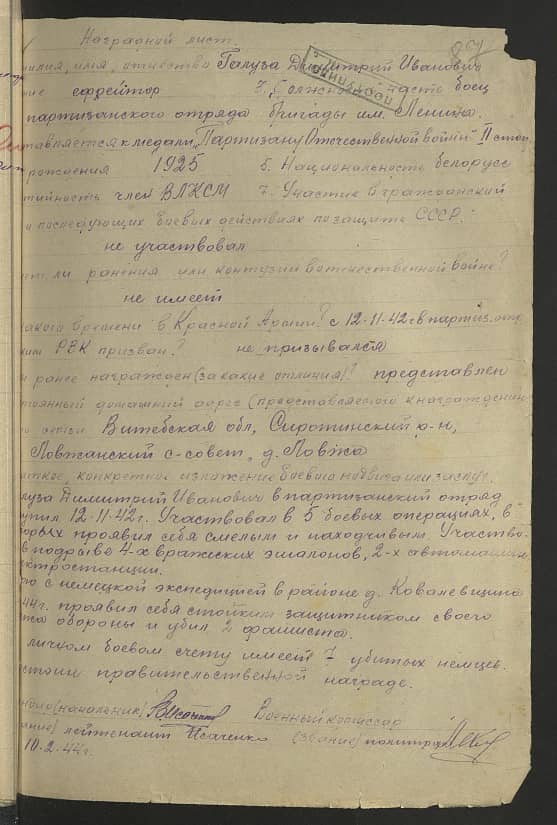 Наградной лист.
87
милия, имя, отчество Галуза Димитрий Иванович
ние ефрейтор 3. Должность, часть боец
партизанского отряда бригады им. Ленина.
тавляется к медали „Партизану Отечественной войны" II степ.
рождения 1925 6. Национальность белорусс
тийность член ВЛКСМ 7. Участие в гражданской
и последующих боевых действиях по защите СССР.
не участвовал
ет ли ранения или контузии в отечественной войне?
не имеет
какого времени в Красной Армии? с 12.11.42г в партиз. отр.
ким РВК призван? не призывался
м ранее награжден (за какие отличия)? представлен
тоянный домашний адрес (представляемого к награждению
семьи Витебская обл, Сиротинский р-н,
Ловжанский с-совет, д. Ловжа
аткое, конкретное изложение боевого подвига или заслуг.
луза Димитрий Иванович в партизанский отряд
упил 12.11.42г. Участвовал в 5 боевых операциях, в
орых проявил себя смелым и находчивым. Участво-
в подрыве 4-х вражеских эшалонов, 2-х автомашин
ктростанции.
ю с немецкой экспедицией в районе д. Ковалевщина
44г. проявил себя стойким защитником своего
та обороны и убил 2 фашиста.
личном боевом счету имеет 7 убитых немцев.
стоин правительственной награде.
(начальник) Военный комиссар
ание) лейтенант Исаченко (звание) политрук
10.2.44г.